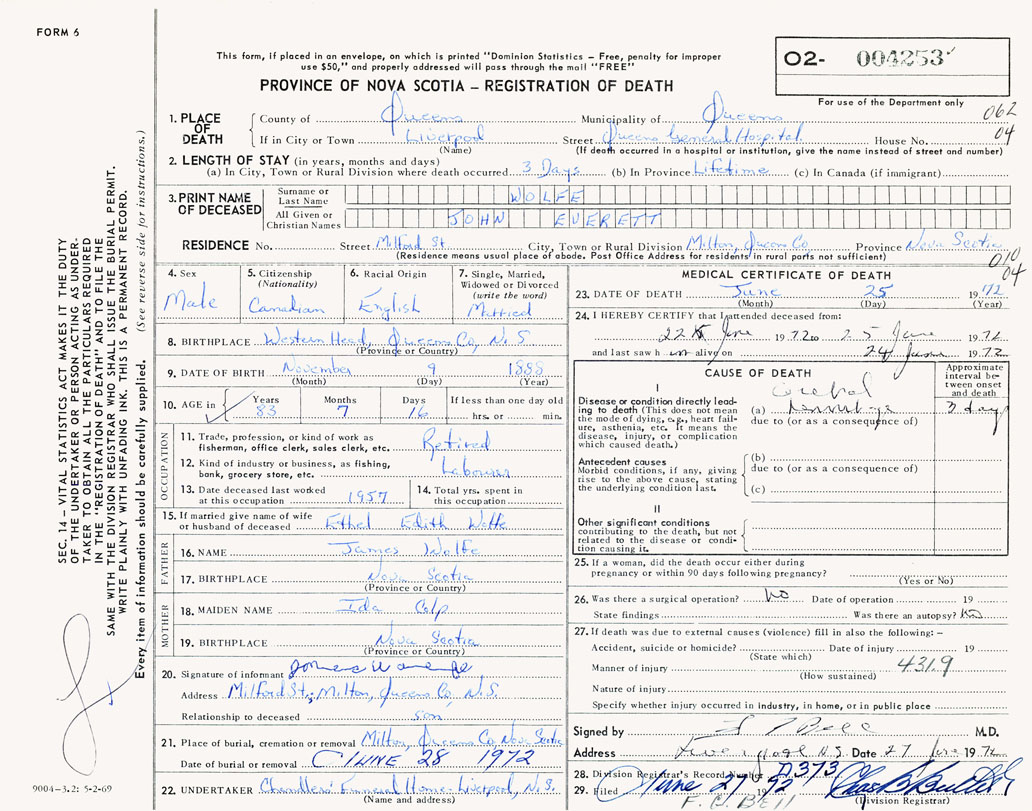 FORM 6
This form, if placed in an envelope, on which is printed "Dominion Statistics – Free, penalty for improper
use $50," and properly addressed will pass through the mail "FREE"
O2- 004253
PROVINCE OF NOVA SCOTIA – REGISTRATION OF DEATH
For use of the Department only
062
04
1. PLACE OF DEATH
County of Queens Municipality of Queens
If in City or Town Liverpool Street Queens General Hospital House No.
(Name) (If death occurred in a hospital or institution, give the name instead of street and number)
2. LENGTH OF STAY (in years, months and days)
(a) In City, Town or Rural Division where death occurred 3 Days (b) In Province Lifetime (c) In Canada (if immigrant)
3. PRINT NAME OF DECEASED
Surname or Last Name WOLFE
All Given or Christian Names JOHN EVERETT
RESIDENCE No. Street Milford St. City, Town or Rural Division Milton, Queens Co. Province Nova Scotia
(Residence means usual place of abode. Post Office Address for residents in rural parts not sufficient)
010
04
4. Sex
Male
5. Citizenship
(Nationality)
Canadian
6. Racial Origin
English
7. Single, Married,
Widowed or Divorced
(write the word)
Married
8. BIRTHPLACE Western Head, Queens Co, N.S
(Province or Country)
9. DATE OF BIRTH November 9 1888
(Month) (Day) (Year)
10. AGE in Years 83 Months 7 Days 16 If less than one day old
hrs. or min.
OCCUPATION
11. Trade, profession, or kind of work as
fisherman, office clerk, sales clerk, etc. Retired
12. Kind of industry or business, as fishing,
bank, grocery store, etc. Labourer
13. Date deceased last worked
at this occupation 1957
14. Total yrs. spent in
this occupation
15. If married give name of wife
or husband of deceased Ethel Edith Wolfe
FATHER
16. NAME James Wolfe
17. BIRTHPLACE Nova Scotia
(Province or Country)
MOTHER
18. MAIDEN NAME Ida Colp
19. BIRTHPLACE Nova Scotia
(Province or Country)
20. Signature of informant
Address Milford St., Milton, Queens Co, N.S.
Relationship to deceased son
21. Place of burial, cremation or removal Milton, Queens Co, Nova Scotia
Date of burial or removal JUNE 28 1972
22. UNDERTAKER Chandlers' Funeral Home Liverpool, N.S.
(Name and address)
MEDICAL CERTIFICATE OF DEATH
23. DATE OF DEATH June 25 1972
(Month) (Day) (Year)
24. I HEREBY CERTIFY that I attended deceased from:
22 June 1972 to 25 June 1972
and last saw h im alive on 24 June 1972
CAUSE OF DEATH
Approximate
interval be-
tween onset
and death
I
Disease or condition directly lead-
ing to death (This does not mean
the mode of dying, e.g., heart fail-
ure, asthenia, etc. It means the
disease, injury, or complication
which caused death.)
(a) 3 days
due to (or as a consequence of)
Antecedent causes
Morbid conditions, if any, giving
rise to the above cause, stating
the underlying condition last.
(b)
due to (or as a consequence of)
(c)
II
Other significant conditions
contributing to the death, but not
related to the disease or condi-
tion causing it.
25. If a woman, did the death occur either during
pregnancy or within 90 days following pregnancy?
(Yes or No)
26. Was there a surgical operation? No Date of operation 19
State findings Was there an autopsy? No
27. If death was due to external causes (violence) fill in also the following: –
Accident, suicide or homicide? Date of injury 19
(State which)
Manner of injury 4319
(How sustained)
Nature of injury
Specify whether injury occurred in industry, in home, or in public place
Signed by M.D.
Address N.S. Date 27 June 1972
28. Division Registrar's Record Number A373
29. Filed June 27 1972
F. C. BELL
(Division Registrar)
SEC. 14 – VITAL STATISTICS ACT MAKES IT THE DUTY
OF THE UNDERTAKER OR PERSON ACTING AS UNDER-
TAKER TO OBTAIN ALL THE PARTICULARS REQUIRED
IN THE "REGISTRATION OF DEATH" AND TO FILE THE
SAME WITH THE DIVISION REGISTRAR WHO SHALL ISSUE THE BURIAL PERMIT.
WRITE PLAINLY WITH UNFADING INK. THIS IS A PERMANENT RECORD.
Every item of information should be carefully supplied. (See reverse side for instructions.)
9004–3.2: 5-2-69